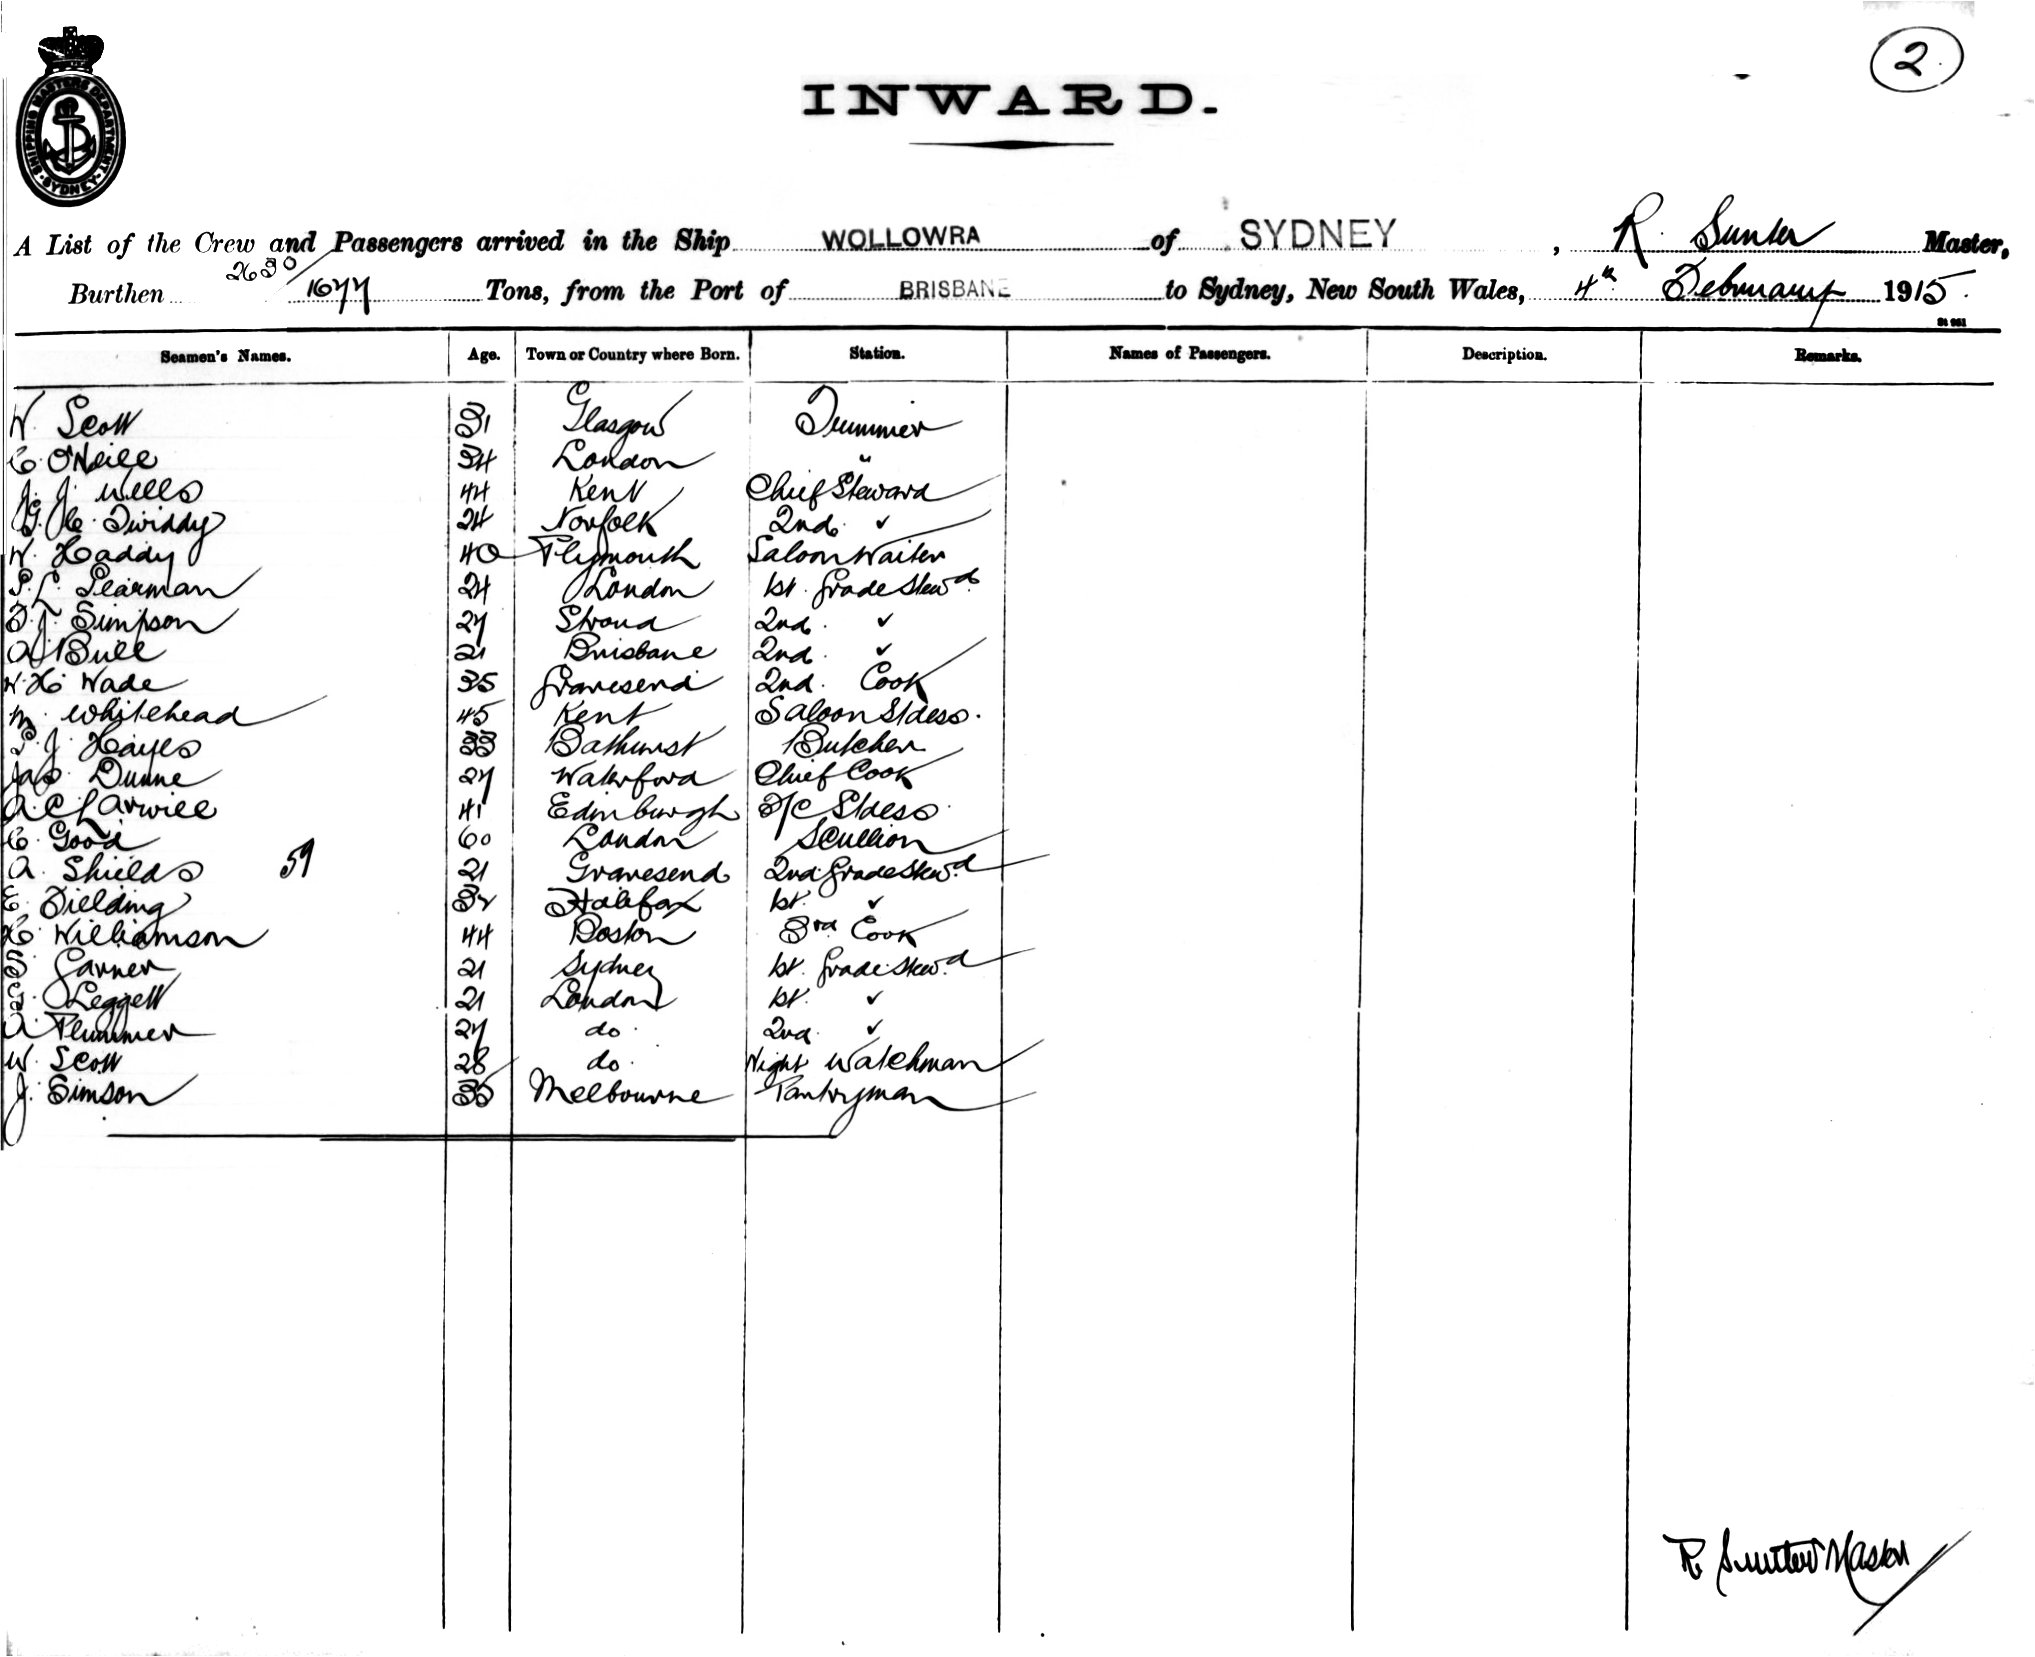 2
SHIPPING MASTERS DEPARTMENT · SYDNEY ·
INWARD.
A List of the Crew and Passengers arrived in the Ship WOLLOWRA of SYDNEY, R. Sunter Master,
Burthen 2630/1677 Tons, from the Port of BRISBANE to Sydney, New South Wales, 4th February 1915.
Seamen's Names. Age. Town or Country where Born. Station. Names of Passengers. Description. Remarks.
W. Scott 31 Glasgow Trimmer
C. O'Neill 34 London "
J. J. Wells 44 Kent Chief Steward
G. C. Twiddy 24 Norfolk 2nd. "
W. Haddy 40 Plymouth Saloon Waiter
P. L. Pearman 24 London 1st. Grade Stewd.
F. J. Simpson 27 Stroud 2nd. "
A. Bull 21 Brisbane 2nd. "
W. H. Wade 35 Gravesend 2nd. Cook
M. Whitehead 45 Kent Saloon Stdess.
P. J. Hayes 33 Bathurst Butcher
Jas. Dunne 27 Waterford Chief Cook
A. C. Larwill 41 Edinburgh F/C Stdess.
C. Good 60 London Scullion
A. Shields 59 21 Gravesend 2nd Grade Stewd.
E. Fielding 32 Halifax 1st. "
H. Williamson 44 Boston 3rd Cook
S. Garner 21 Sydney 1st. Grade Stewd.
G. Leggett 21 London 1st. "
A. Plummer 27 do. 2nd. "
W. Scott 28 do. Night Watchman
J. Simson 35 Melbourne Pantryman
R. Sunter Master